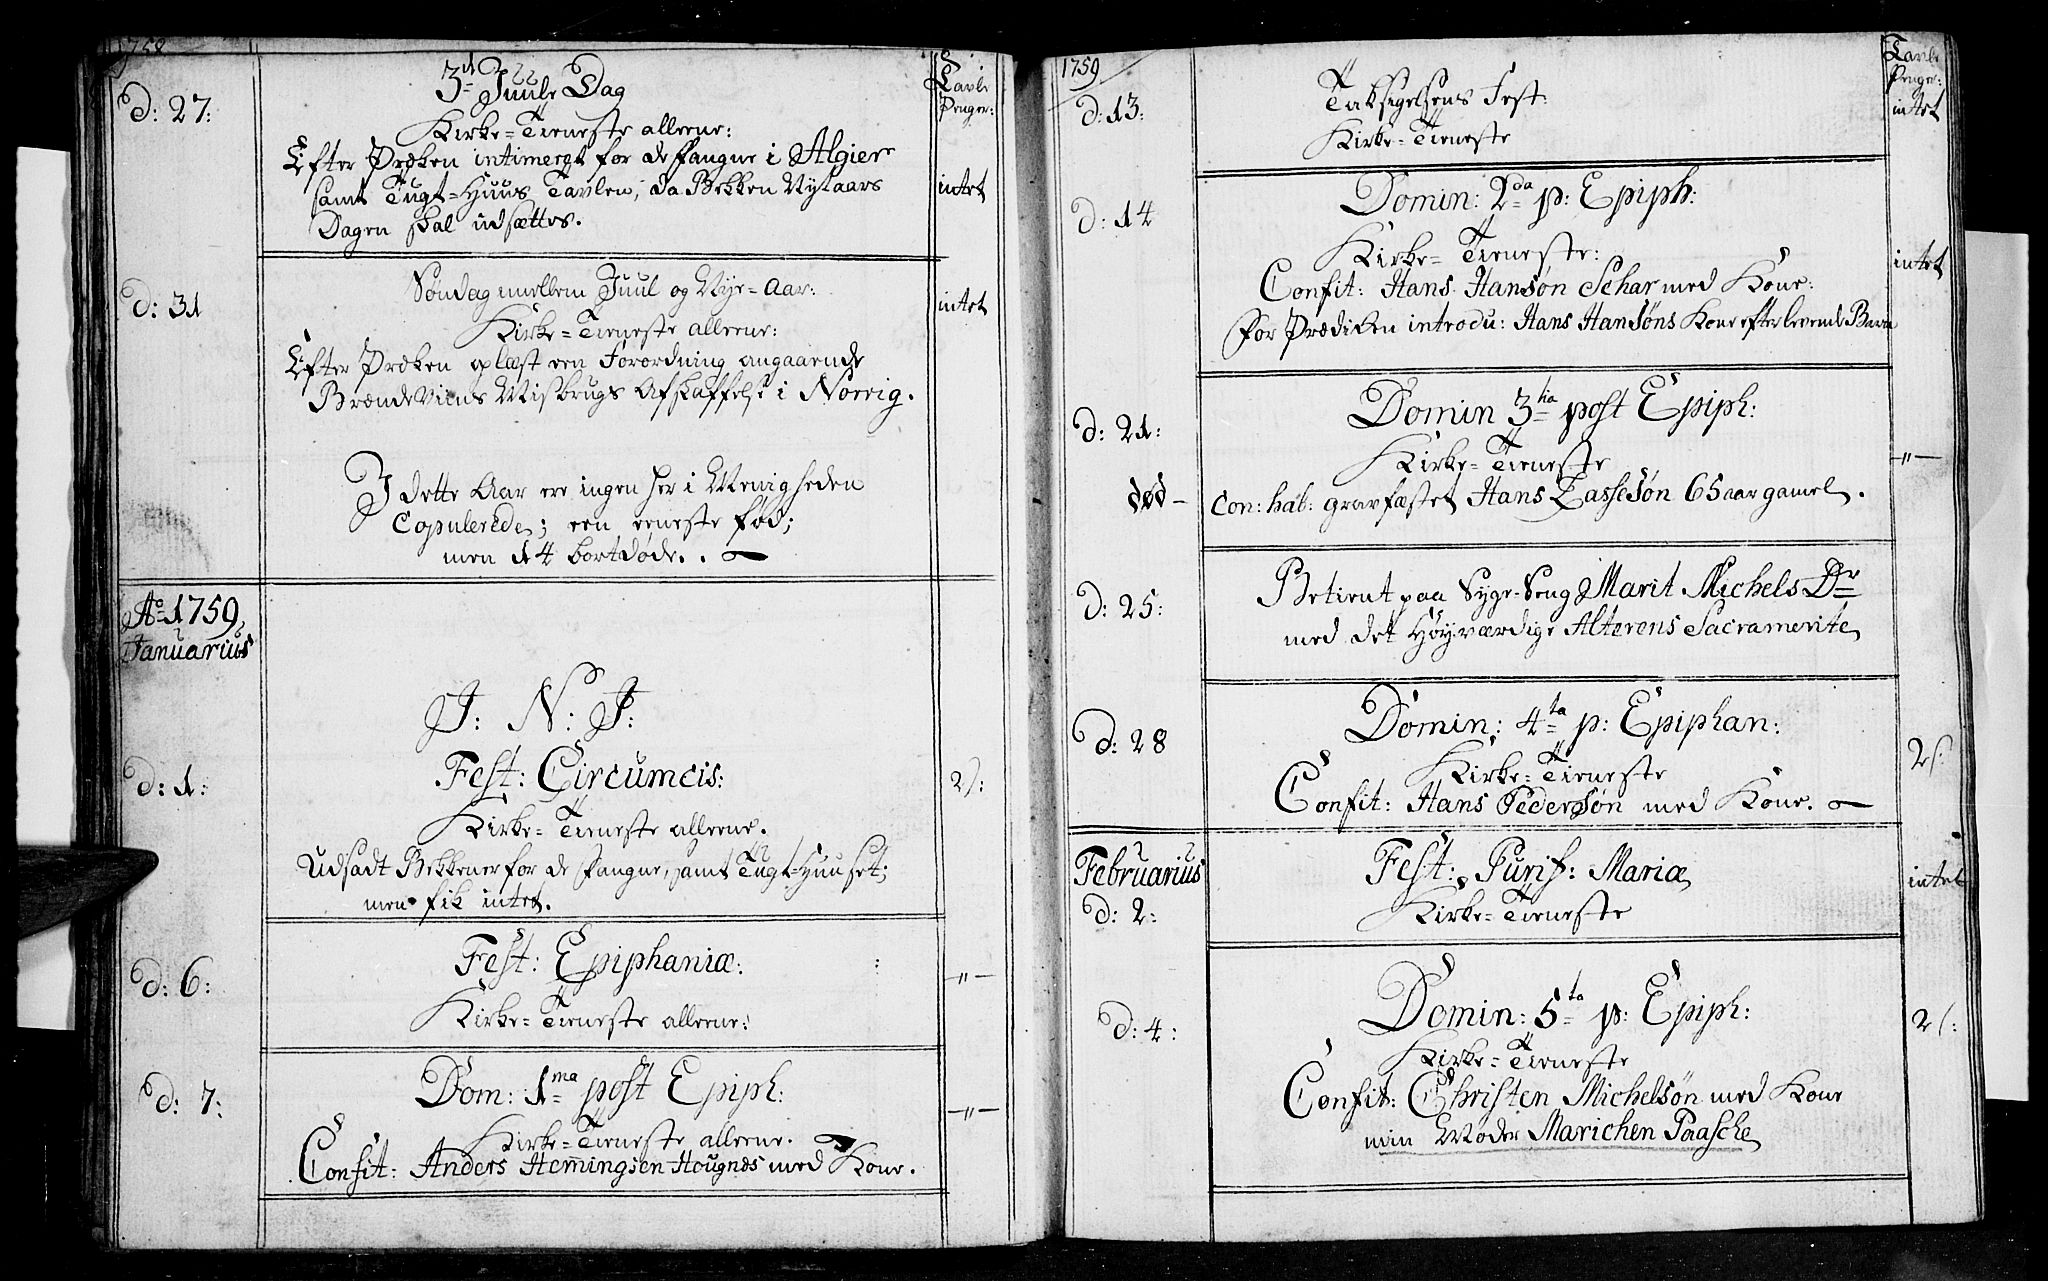 1758
Tavle
Penger:
d: 27:
3d Juule Dag
Kirke=Tieneste alleene:
Efter Præken intimeret for de Fangne i Algier
samt Tugt=Huus Tavlen, da Bekken Nytaars
Dagen skal udsættes.
intet
d: 31
Søndag imellem Juul og Nye=Aar:
intet
Kirke=Tieneste alleene:
Efter Præken oplæst een Forordning angaaende
BrændeViins Misbrugs Afskaffelse i Norrig.
I dette Aar ere ingen her i Menigheden
Copulerede; een eeneste fød;
men 14 bortdøde.
Ao 1759
Januarius
J: N: J:
d: 1:
Fest: Circumcis:
2s:
Kirke=Tieneste alleene.
Udsadt Bekkener for de Fangne, samt Tugt=Huuset;
men fik intet.
d: 6:
Fest: Epiphaniæ:
—"—
Kirke=Tieneste alleene:
d: 7:
Dom: 1ma post Epiph:
—"—
Kirke=Tieneste alleene.
Confit: Anders Hemingsen Hougnæs med Kone.
1759
Tavle
Penger:
d: 13:
Taksigelsens Fest:
intet
Kirke=Tieneste
d: 14
Domin: 2da p: Epiph:
Kirke=Tieneste:
intet
Confit: Hans Hansøn Schar med Kone:
For Prædicken introdu: Hans Hansøns Kone efter levende Barn
d: 21:
Domin 3tia post Epiph:
Kirke=Tieneste
—"—
død—
con: hab: gravfæstet Hans Lassesøn 65 aar gamel.
d: 25:
Betient paa Syge-Seng Marit Michels Dr
med det Høyværdige Alterens Sacramente
d: 28
Domin: 4ta p: Epiphan:
2s:
Kirke=Tieneste
Confit: Hans Pedersøn med Kone.
Februarius
d: 2:
Fest: Purif: Mariæ
intet
Kirke=Tieneste
d: 4:
Domin: 5ta p: Epiph:
2s:
Kirke=Tieneste
Confit: Christen Michelsøn med Kone
min Moder Marichen Paasche